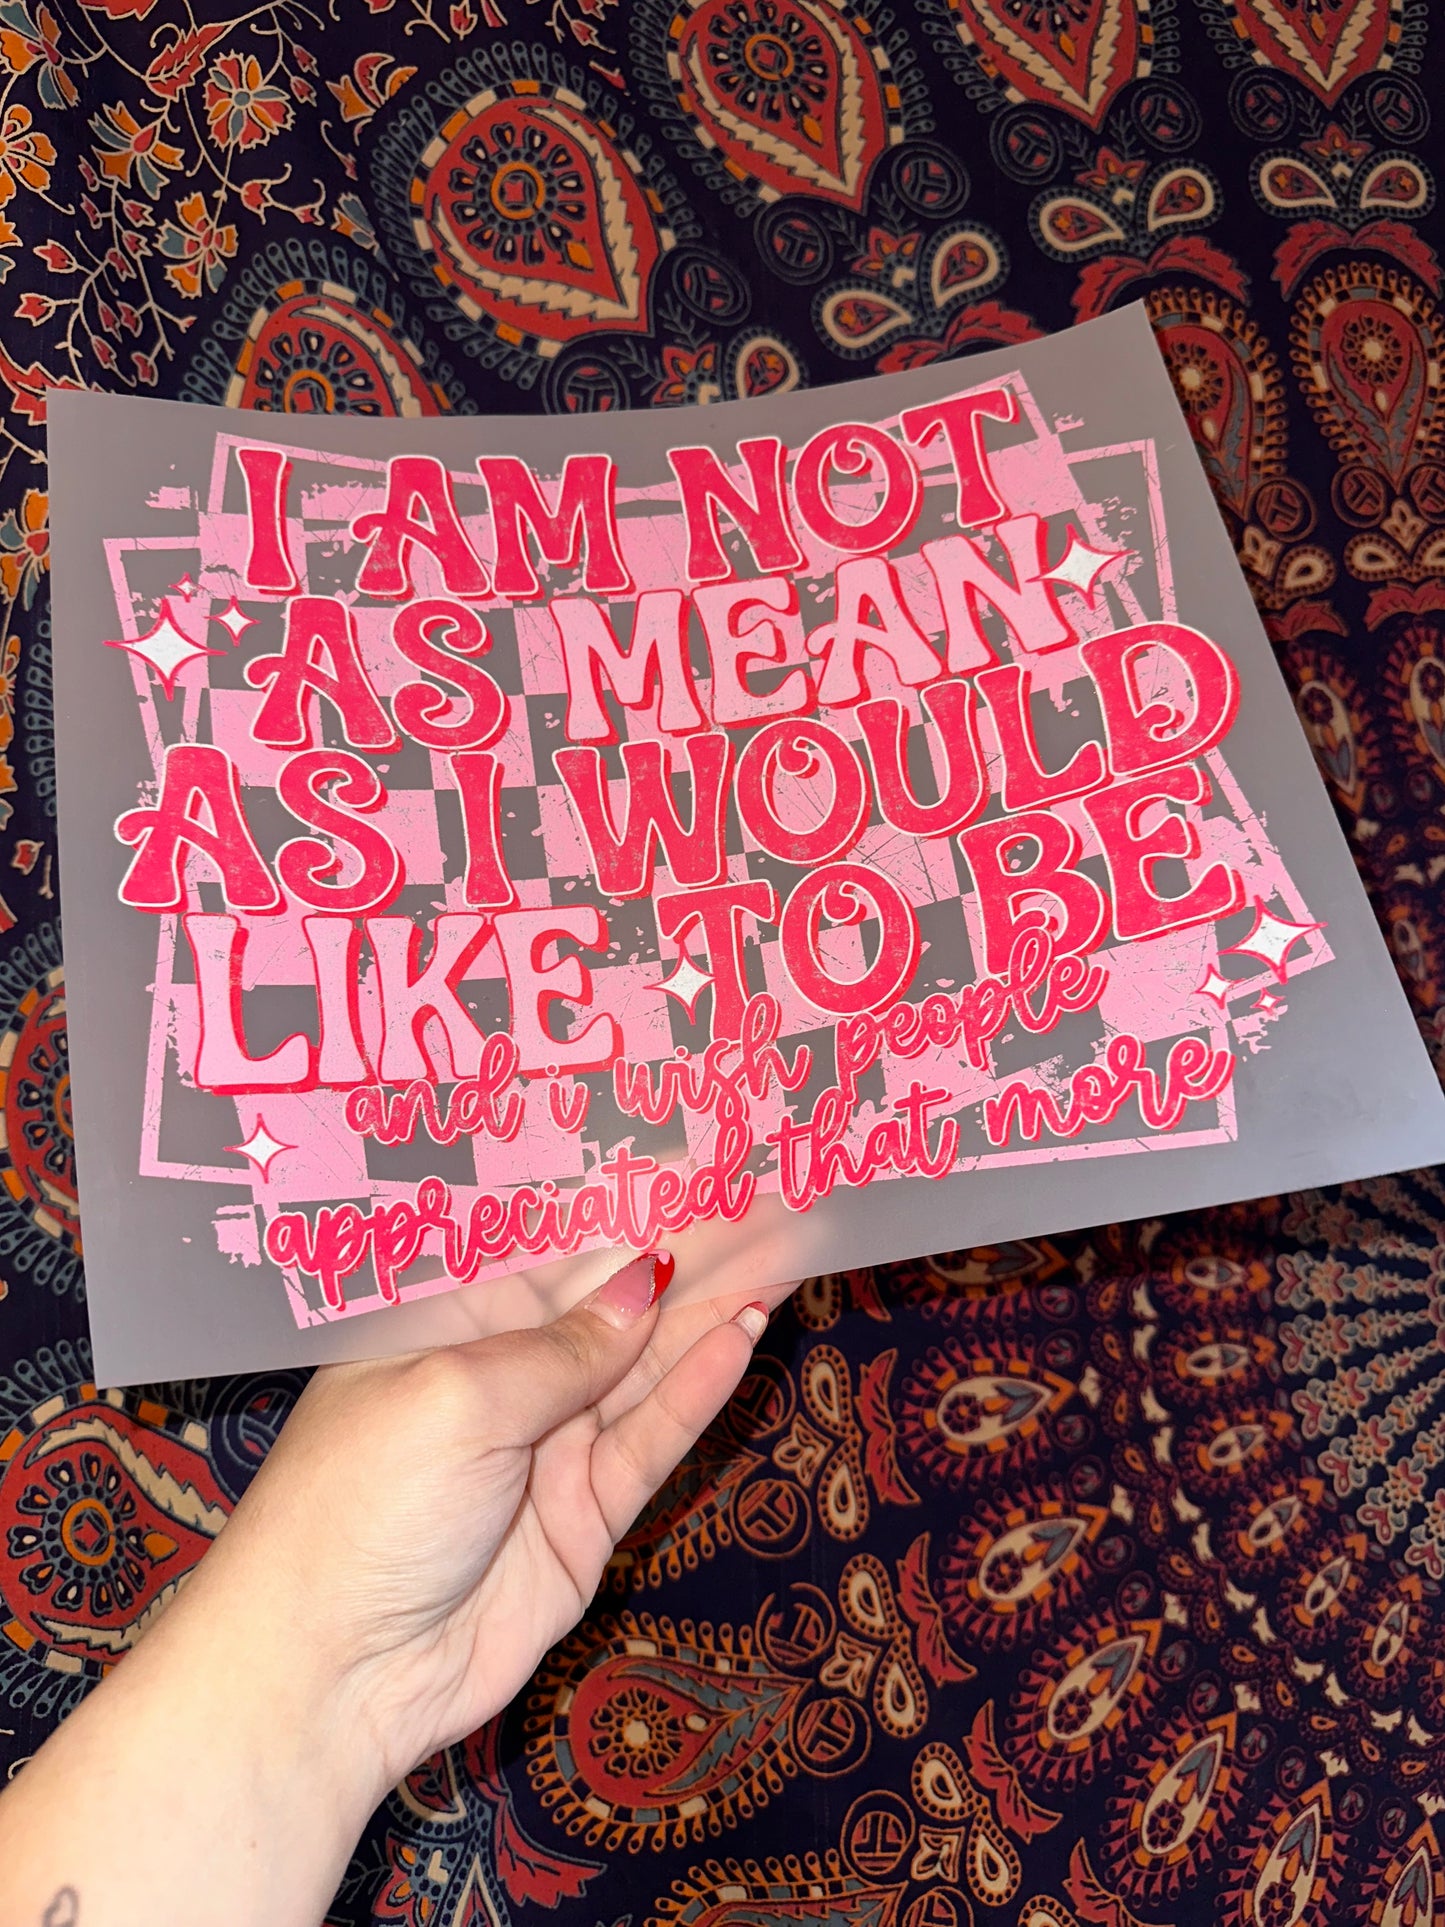 I AM NOT
AS MEAN
AS I WOULD
LIKE TO BE
and i wish people
appreciated that more